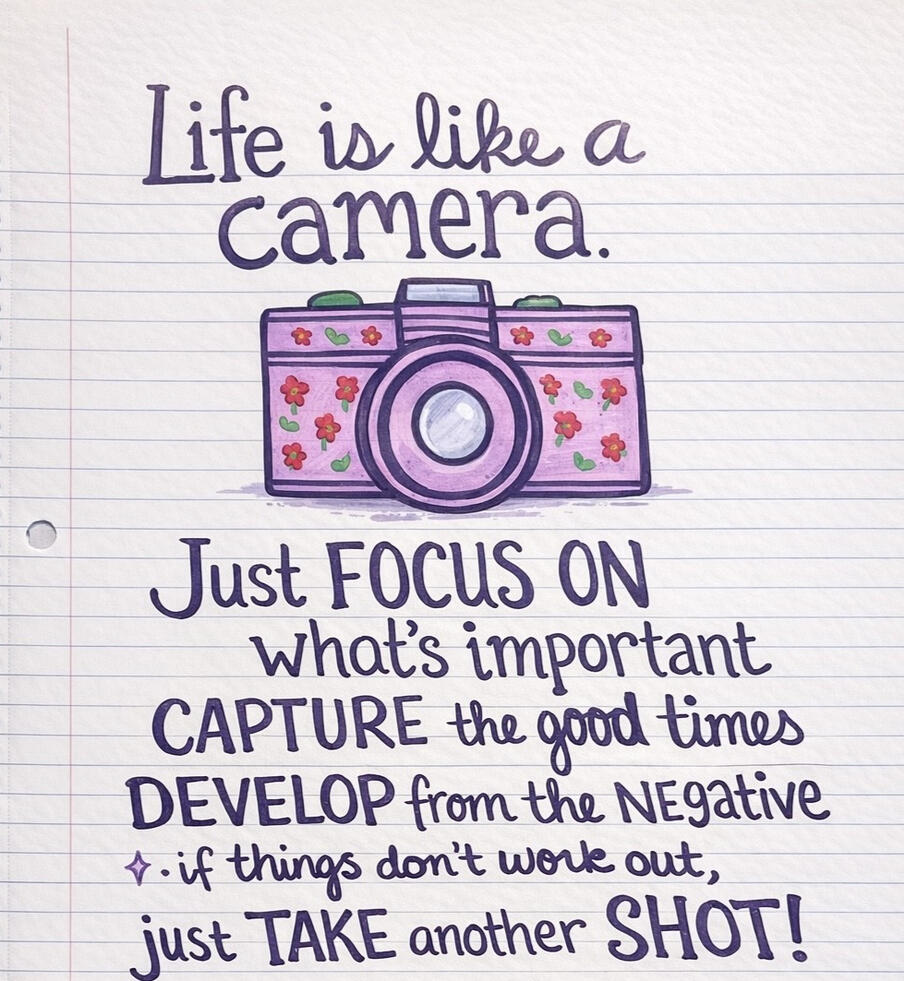 Life is like a
camera.
Just FOCUS ON
what's important
CAPTURE the good times
DEVELOP from the NEgative
if things don't work out,
just TAKE another SHOT!